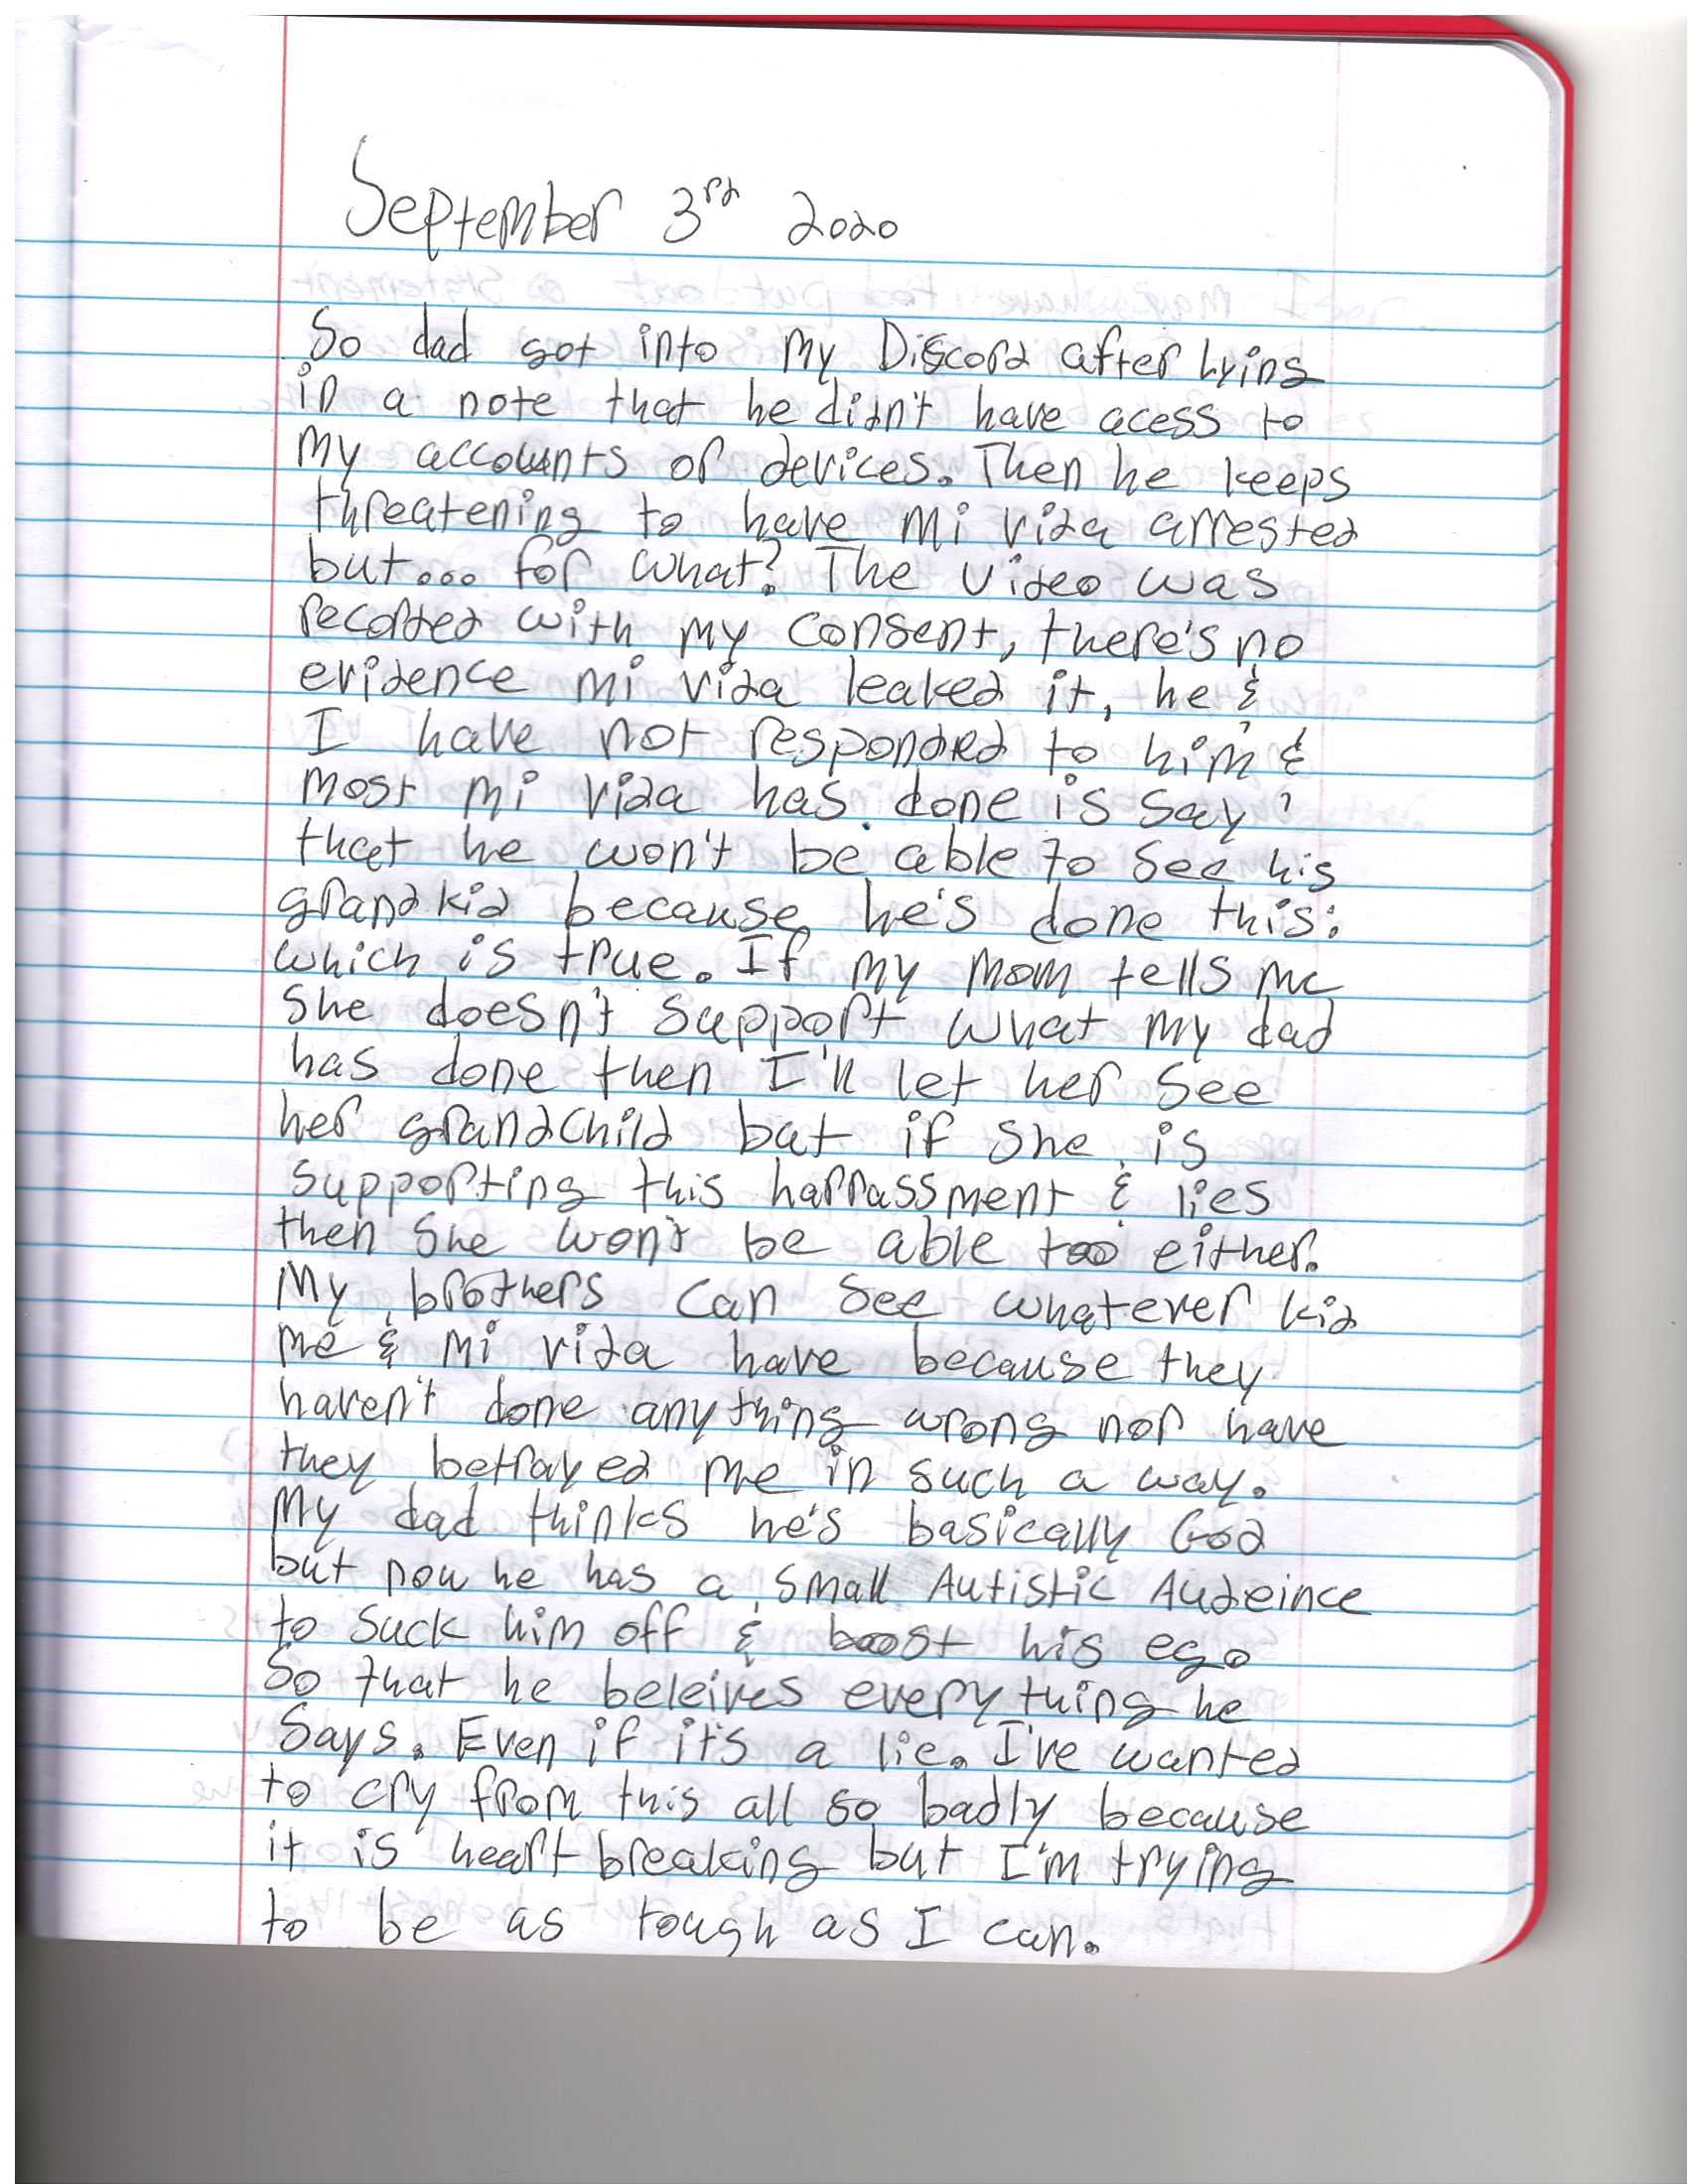 September 3rd 2020
So dad got into my Discord after lying
in a note that he didn't have acess to
my accounts or devices. Then he keeps
threatening to have mi vida arrested
but... for what? The video was
recorded with my consent, there's no
evidence mi vida leaked it, he &
I have not responded to him &
most mi vida has done is say
that he won't be able to see his
grandkid because he's done this:
which is true. If my mom tells me
she doesn't support what my dad
has done then I'll let her see
her grandchild but if she is
supporting this harrassment & lies
then she won't be able too either.
My brothers can see whatever kid
me & mi vida have because they
haven't done anything wrong nor have
they betrayed me in such a way.
My dad thinks he's basically God
but now he has a small Autistic Audeince
to suck him off & boost his ego
so that he beleives everything he
says. Even if it's a lie. I've wanted
to cry from this all so badly because
it is heart breaking but I'm trying
to be as tough as I can.